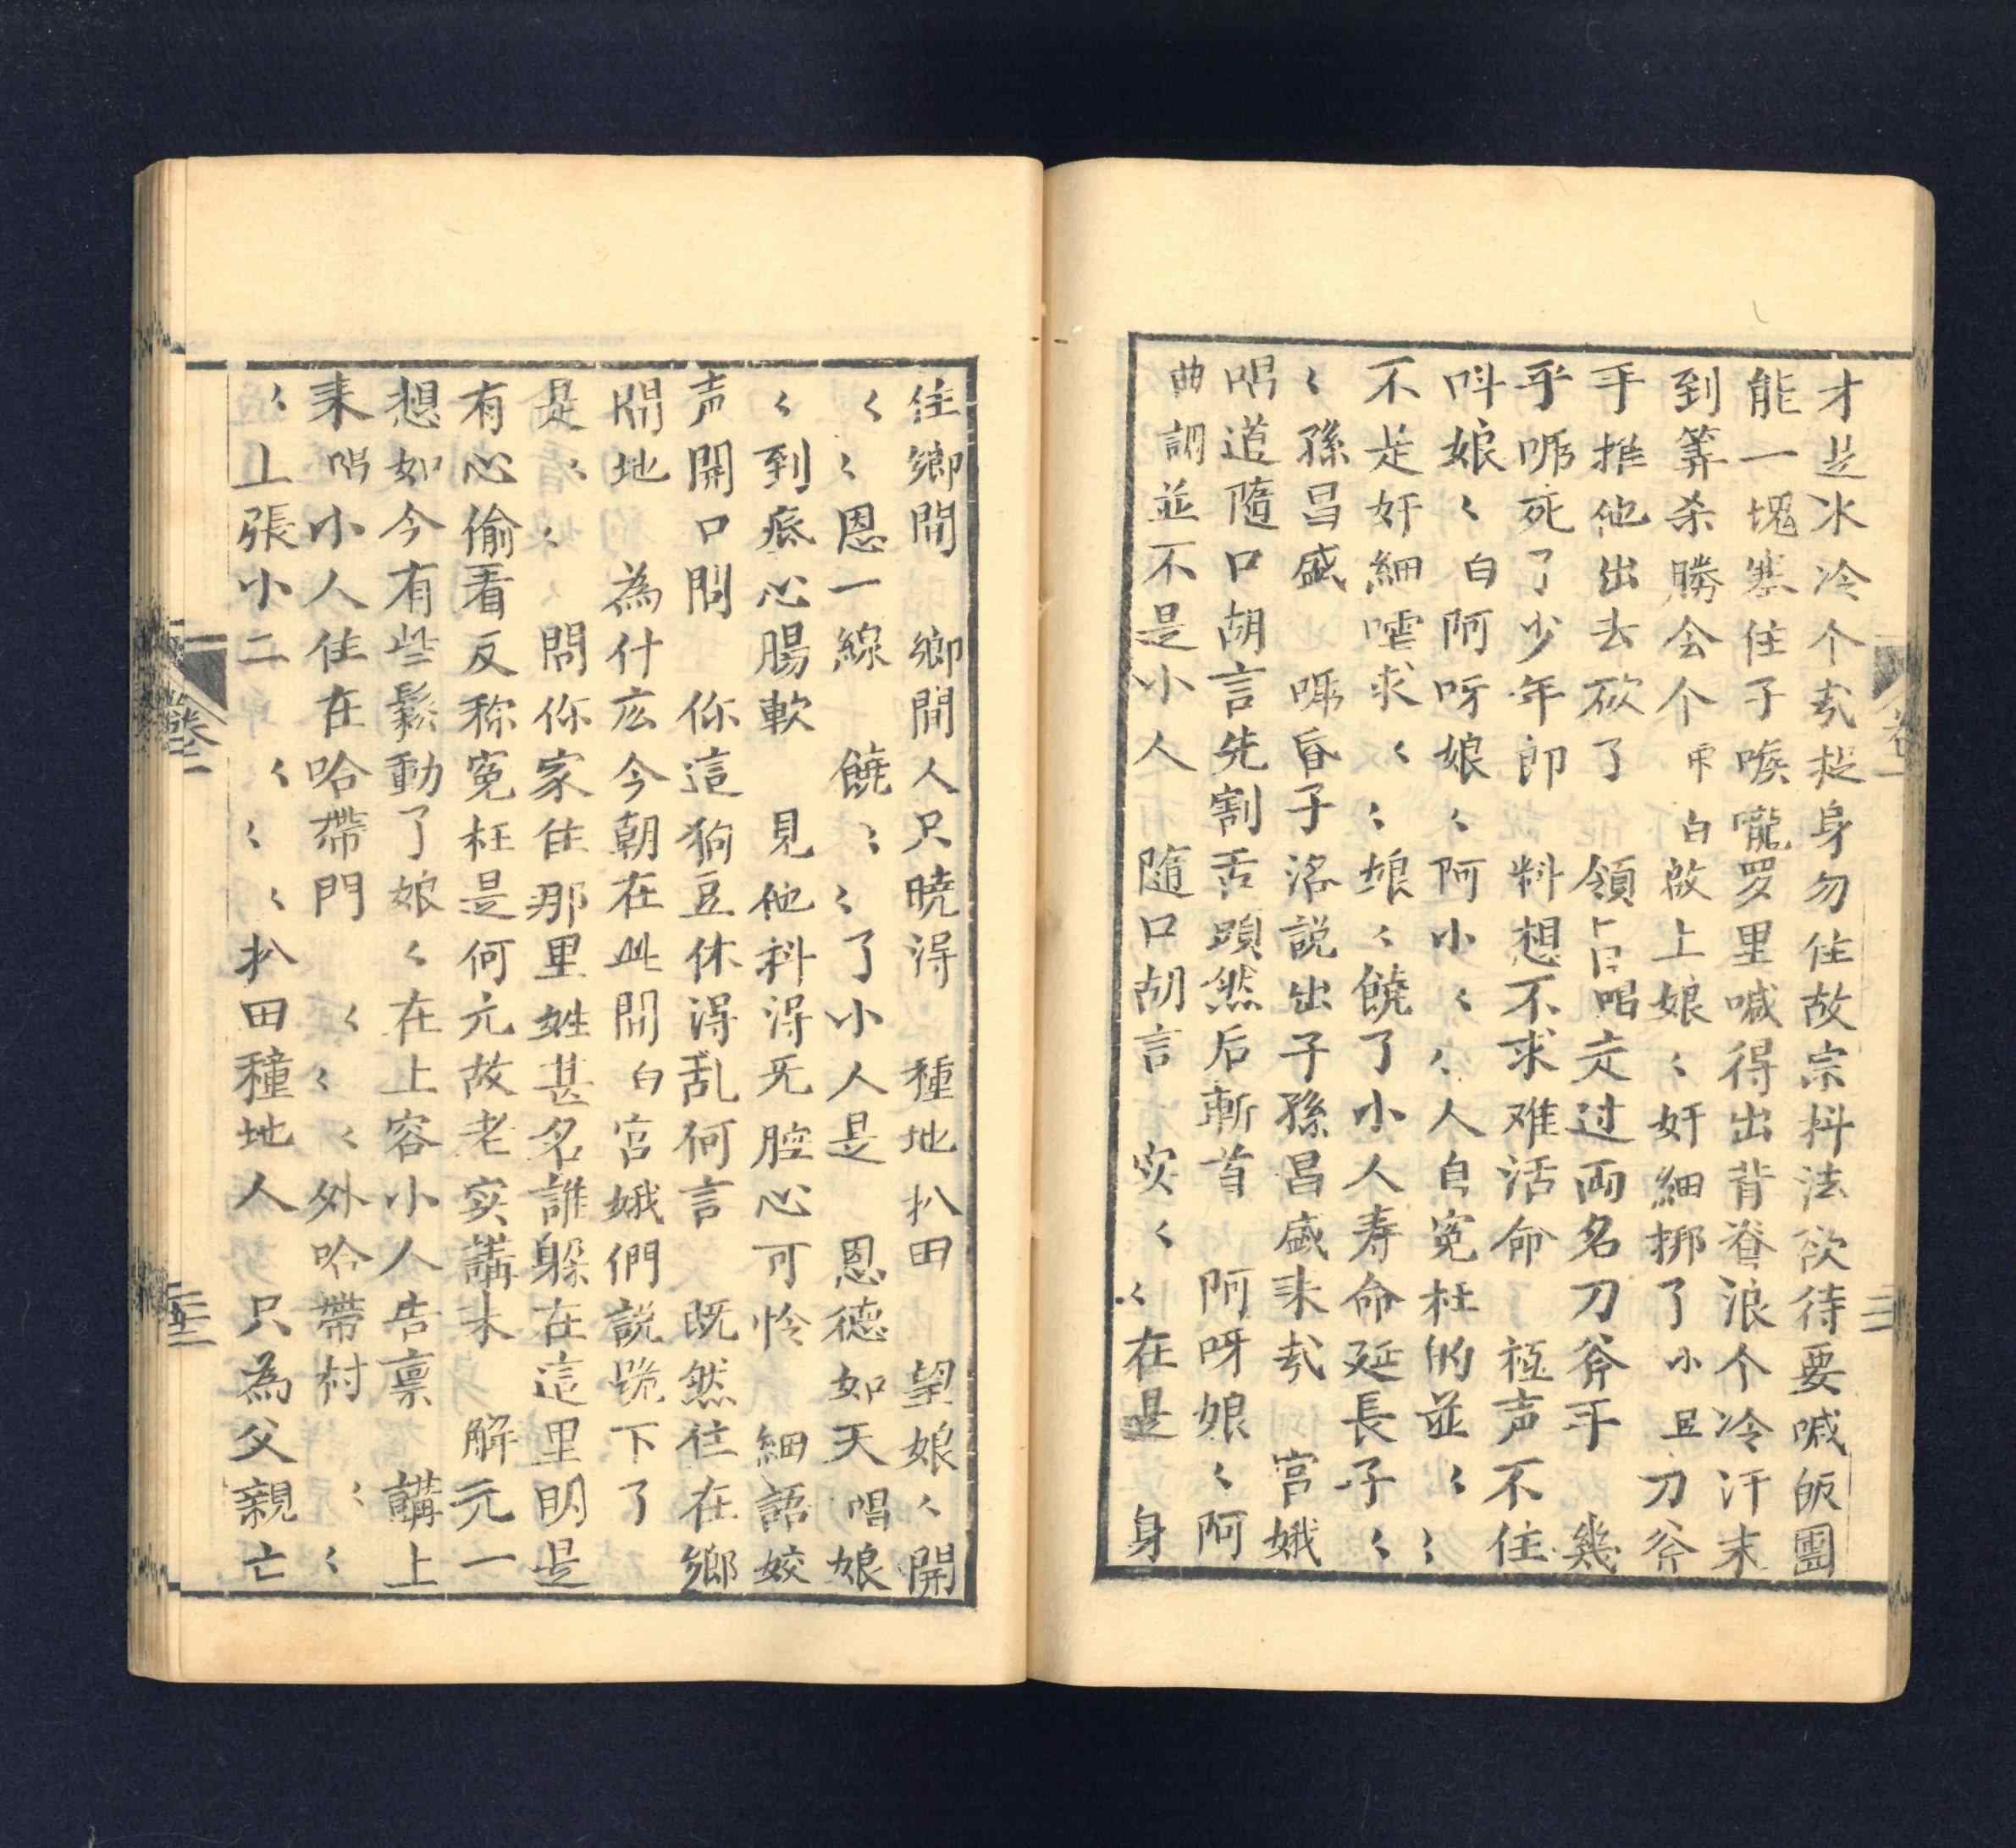 才是冰冷个㢤捉身勿住故宗抖法欲待要喊皈團
能一塊塞住子喉嚨罗里喊得出背脊浪个冷汗末
到筭杀勝会个 白啟上娘〻奸細挷了小且刀斧
手推他出去砍了 領旨唱交过両名刀斧手 幾
乎唬死了少年郎 料想不求难活命 極声不住
呌娘〻白阿呀娘〻阿小〻〻人自冤枉的並〻〻
不是奸細嘘求〻〻娘〻饒了小人寿命延長子〻
〻孫昌盛 唬昏子洛説出子孫昌盛来㢤 宫娥
唱道隨口胡言先割舌頭然后斬首 阿呀娘〻阿
曲調並不是小人 隨口胡言 实〻〻在是 身
住鄉間 鄉間人只曉得 種地扒田 望娘〻開
〻〻恩一線 饒〻〻了小人是 恩德如天唱娘
〻到底心腸軟 見他科得旡腔心可怜 細語姣
声開口問 你這狗豆休得乱何言 既然住在鄉
間地 為什庅今朝在此間白宫娥們説跪下了
是〻〻 問你家住那里姓甚名誰躱在這里明是
有心偷看反称冤枉是何元故老实講来 解元一
想如今有些鬆動了娘〻在上容小人告禀 講上
来唱小人住在哈帶門 〻〻〻外哈帶村 〻〻
〻上張小二 〻〻〻扒田種地人 只為父親亡
卷一
二十三